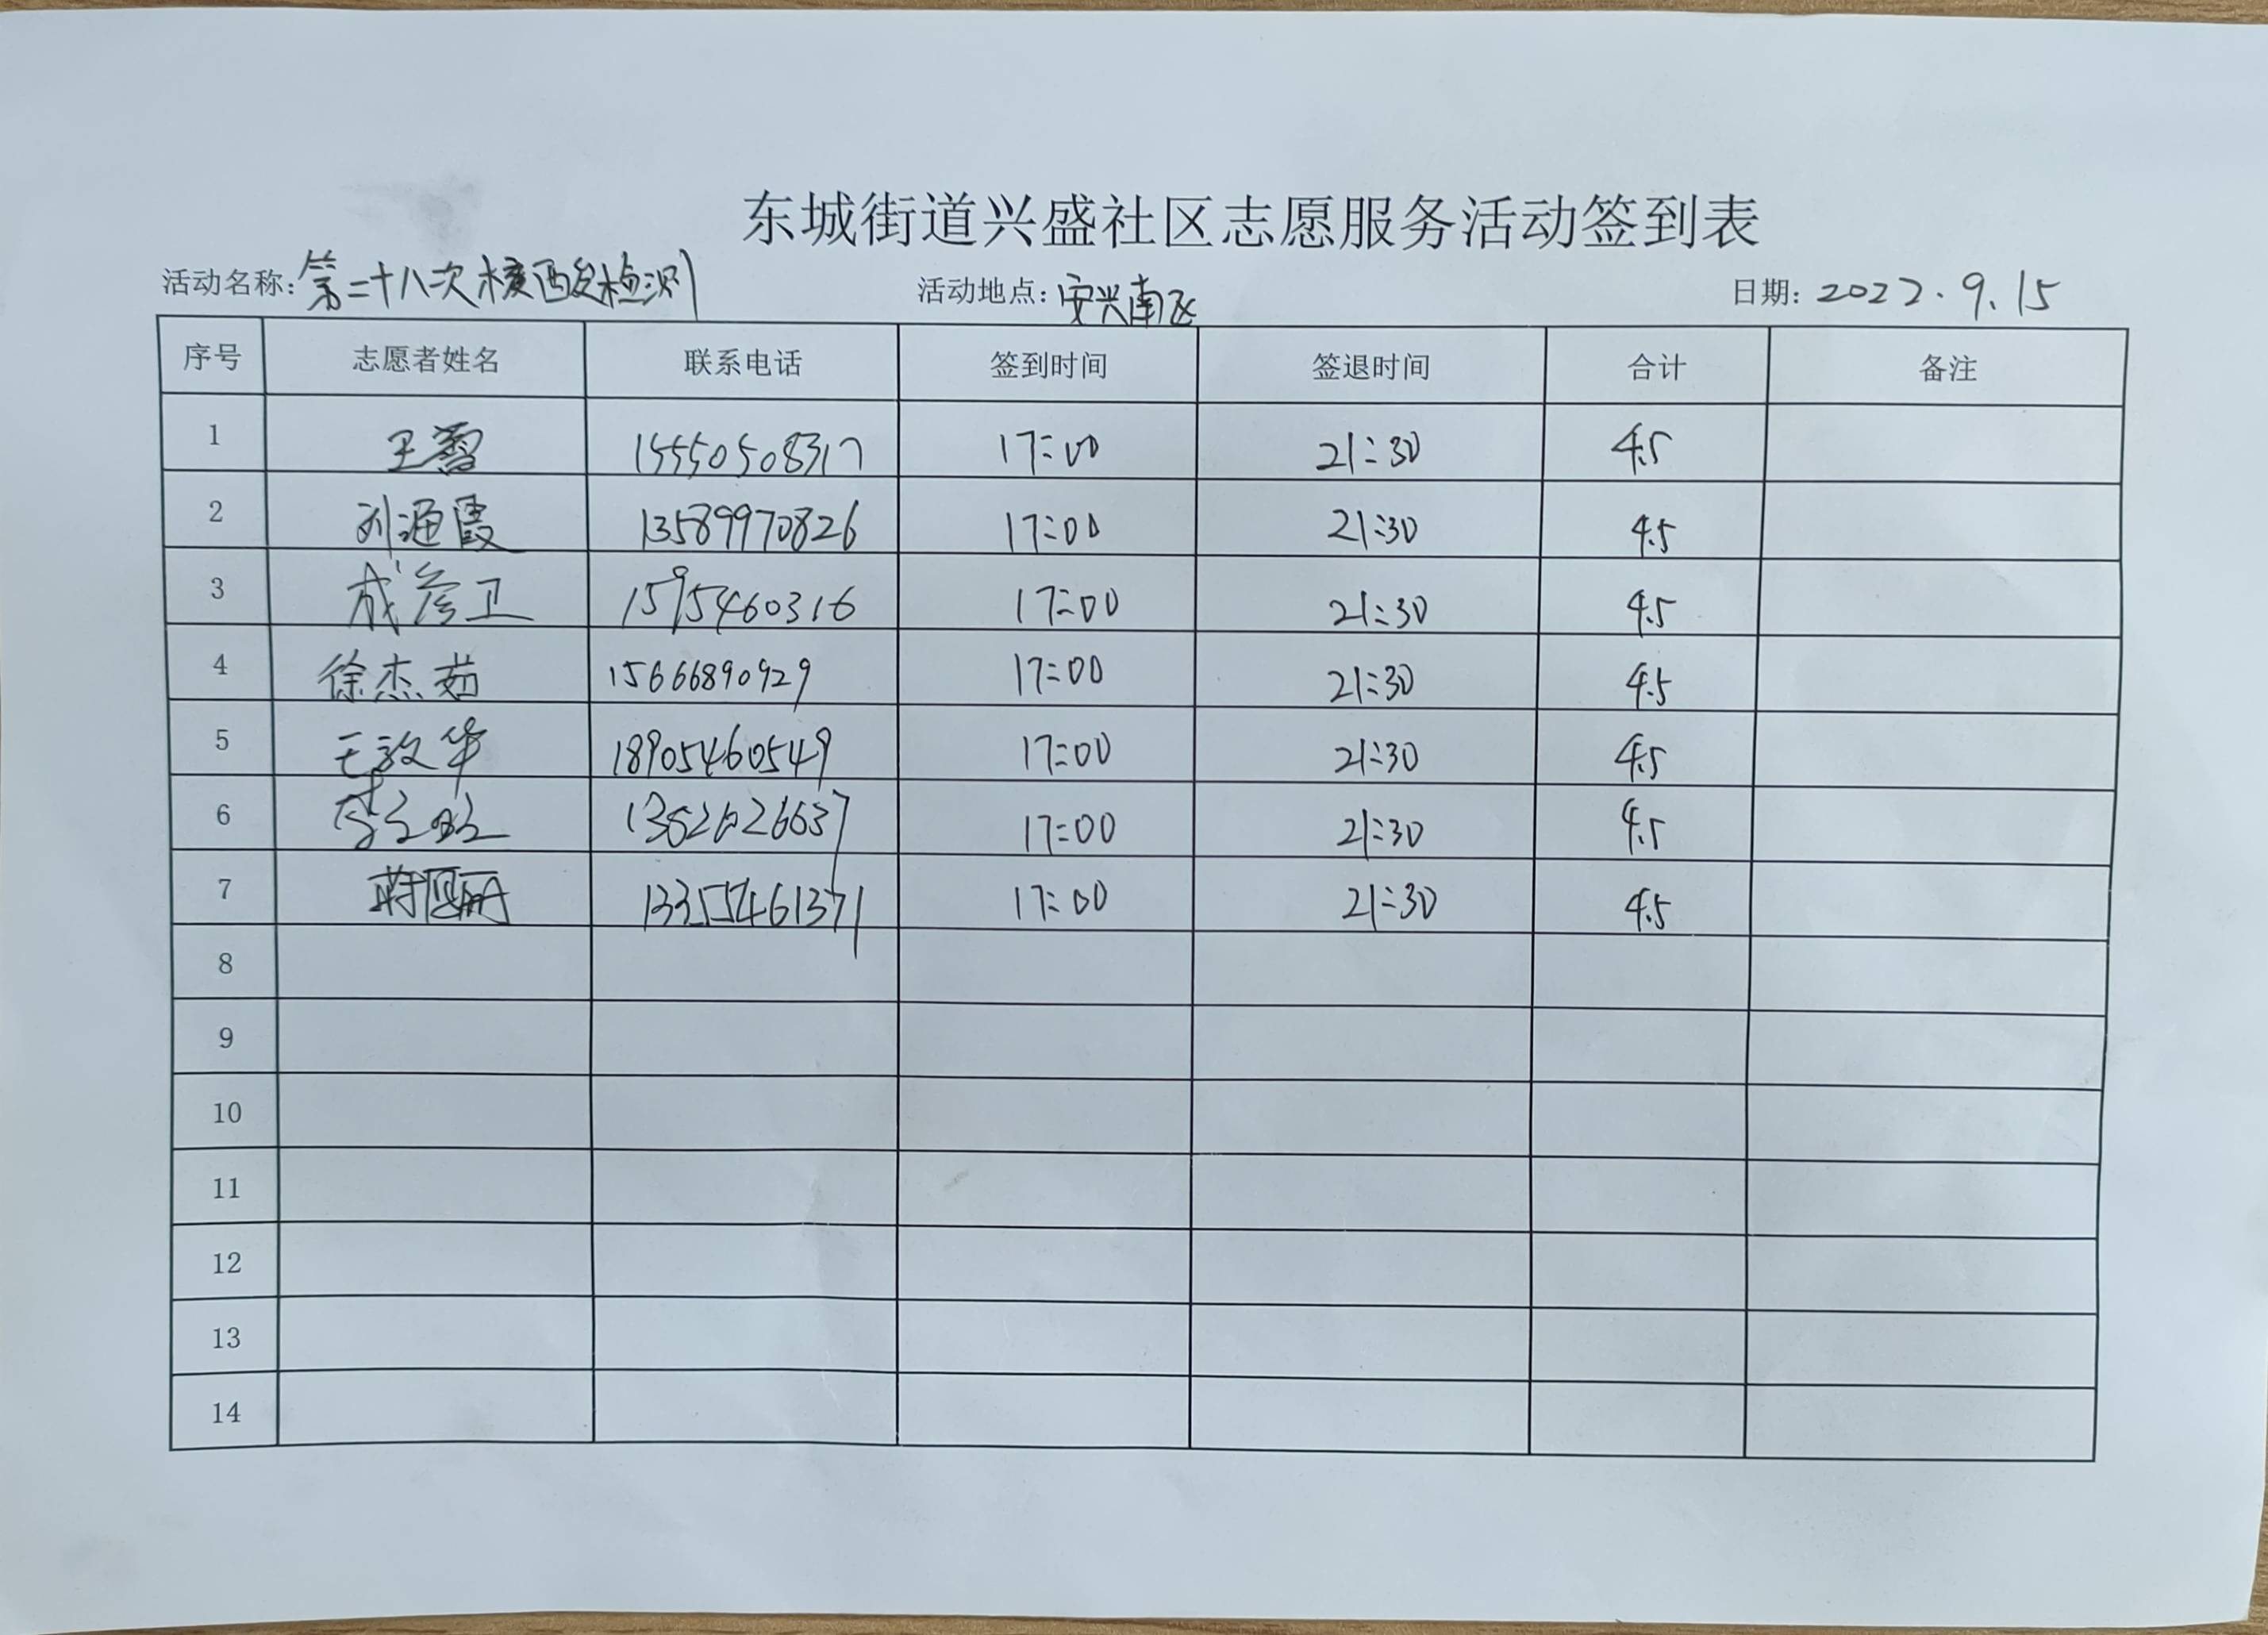 东城街道兴盛社区志愿服务活动签到表
活动名称: 第二十八次核酸检测 活动地点: 安兴南区 日期: 2022.9.15
序号 志愿者姓名 联系电话 签到时间 签退时间 合计 备注
1 王 15550508317 17:00 21:30 4.5
2 刘通霞 13589970826 17:00 21:30 4.5
3 成彦卫 1595460316 17:00 21:30 4.5
4 徐杰茹 15666890929 17:00 21:30 4.5
5 王效华 18905460549 17:00 21:30 4.5
6 17:00 21:30 4.5
7 蒋丽丽 13355461371 17:00 21:30 4.5
8
9
10
11
12
13
14